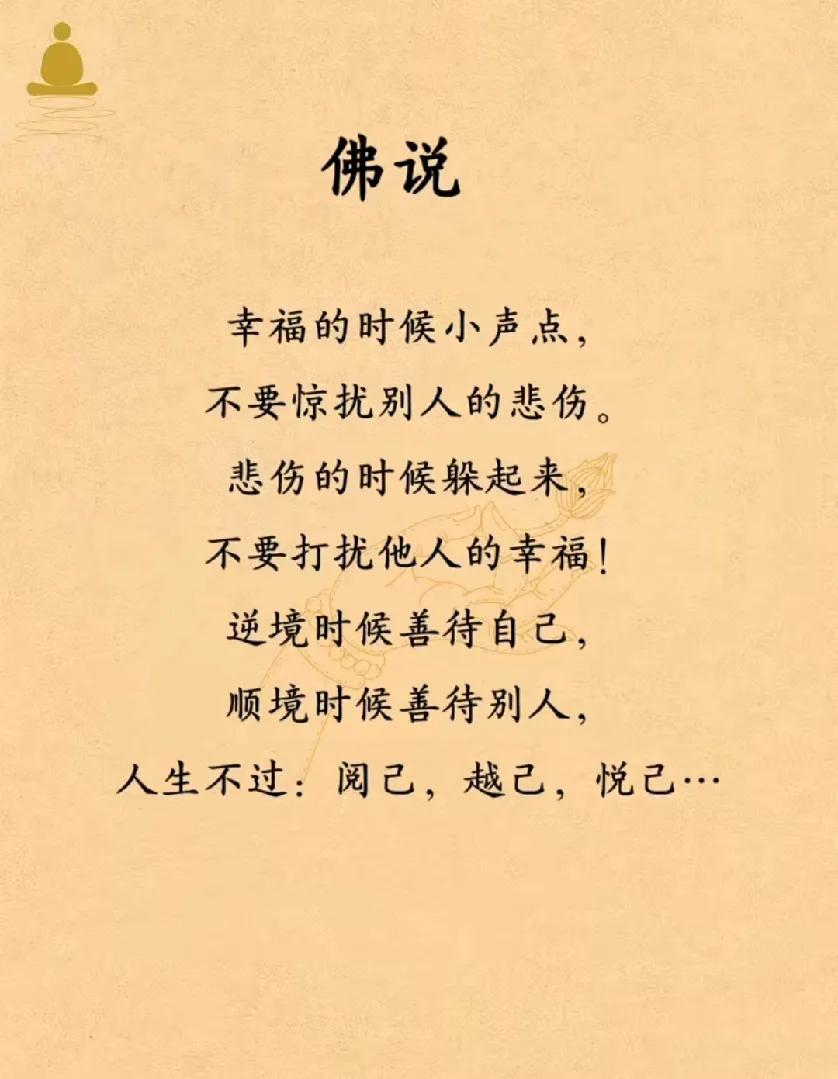 佛说
幸福的时候小声点，
不要惊扰别人的悲伤。
悲伤的时候躲起来，
不要打扰他人的幸福！
逆境时候善待自己，
顺境时候善待别人，
人生不过：阅己，越己，悦己…